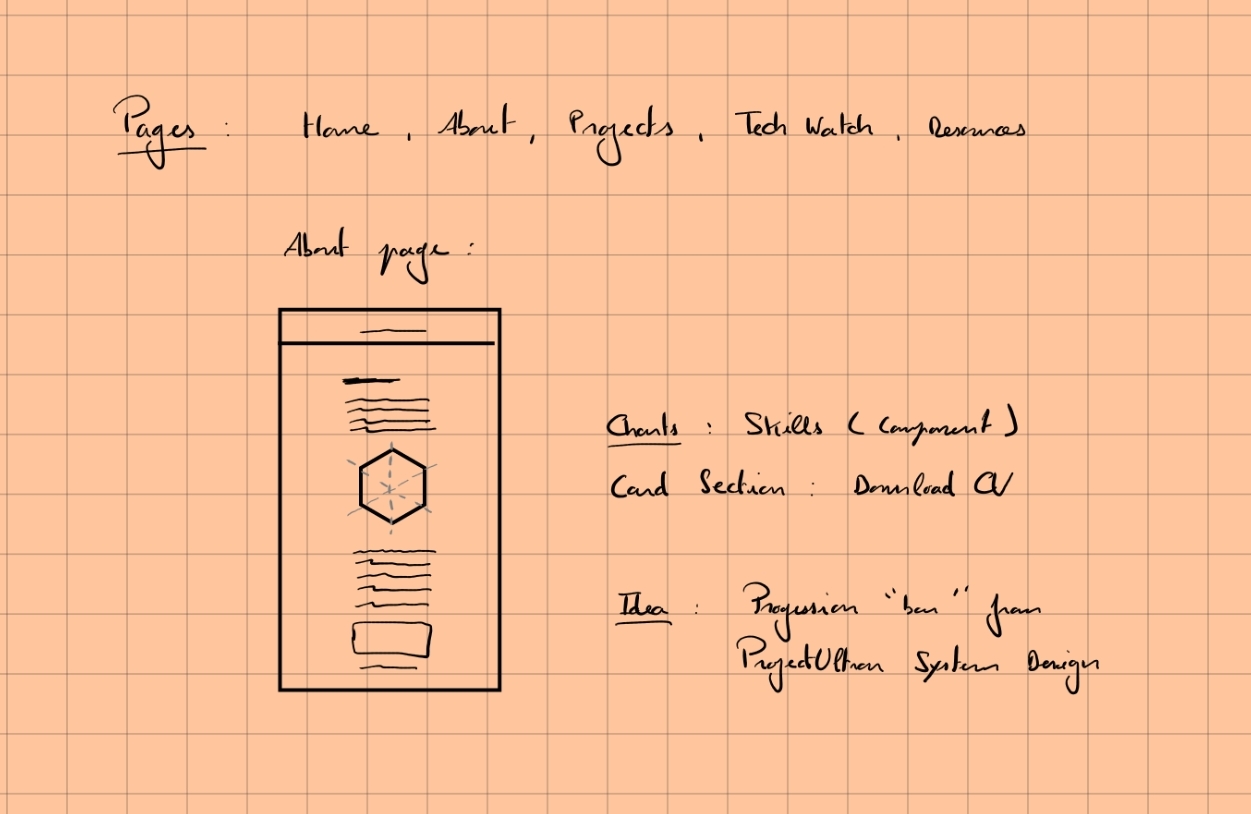 Pages : Home , About , Projects , Tech Watch , Resources
About page :
Charts : Skills ( Component )
Card Section : Download CV
Idea : Progression "bar" from
ProjectUltron System Design